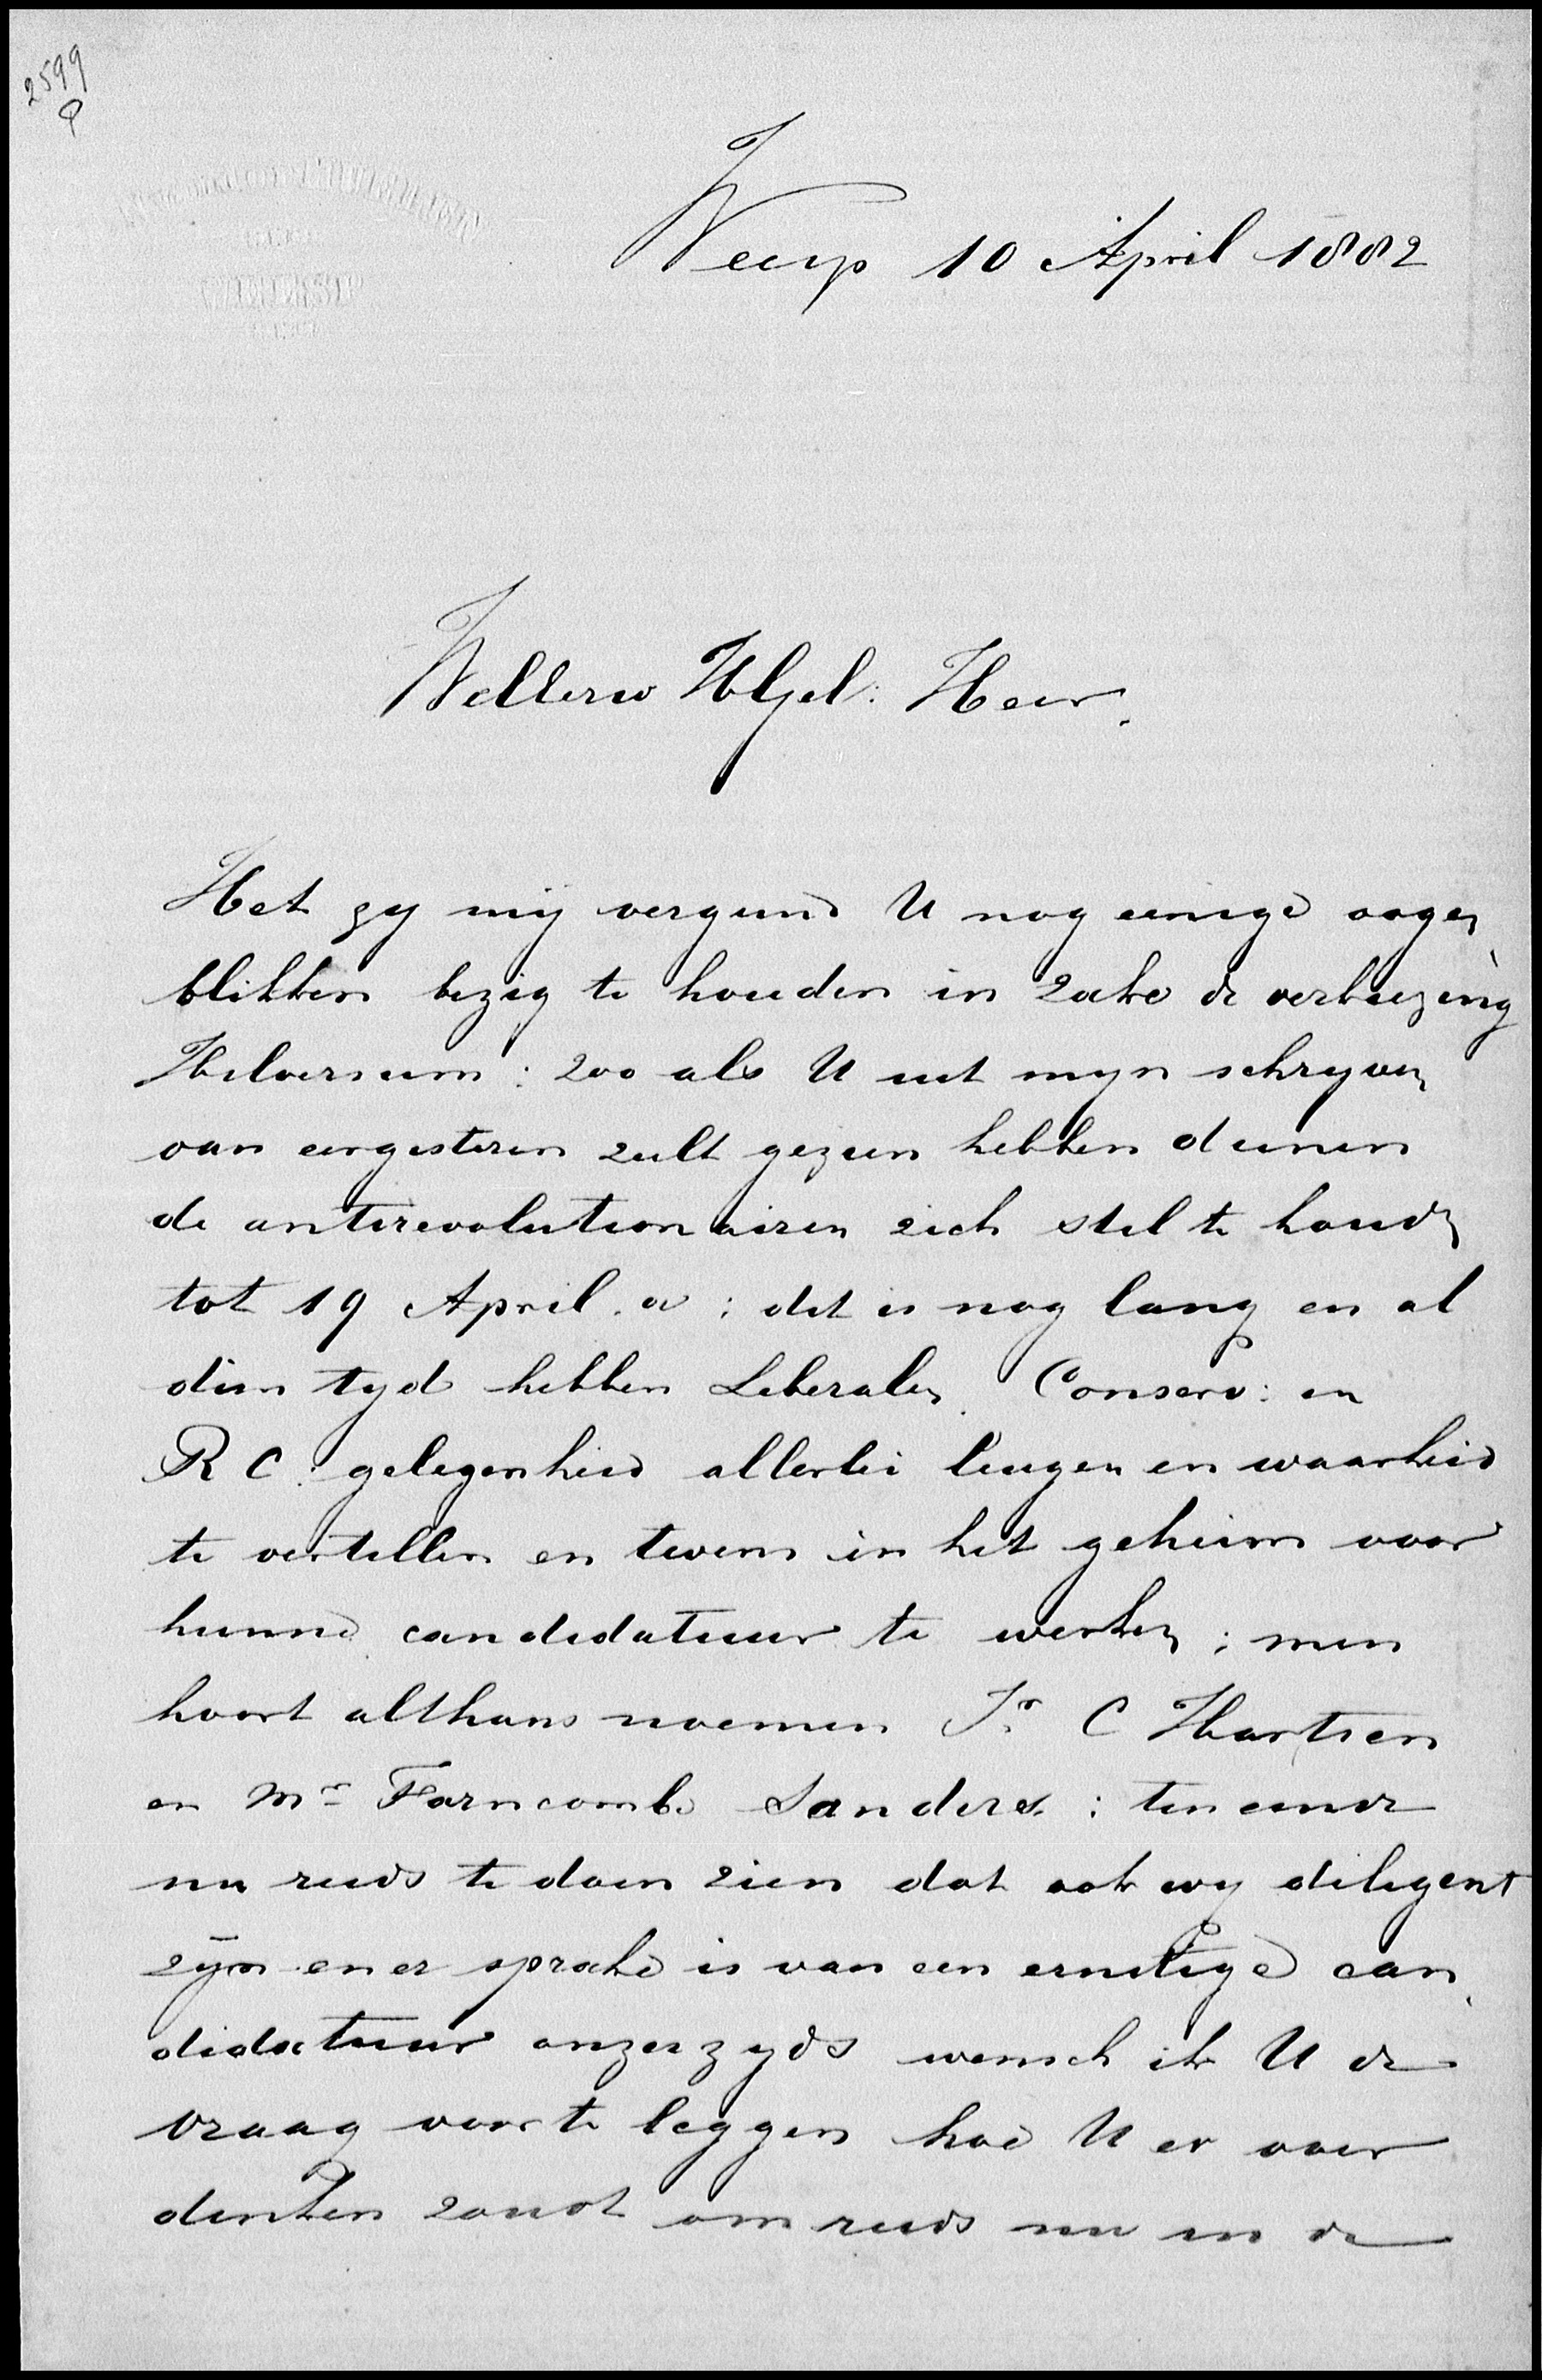 2599
Weesp 10 April 1882
WelEerw HGel: Heer.
Het zy mij vergund U nog eenige oogen
blikken bezig te houden in zake de verkiezing
Hilversum: zoo als U uit myn schryven
van eergisteren zult gezien hebben dienen
de antirevolutionairen zich stil te houden
tot 19 April. a: dit is nog lang en al
dien tyd hebben Liberalen Conserv: en
R C: gelegenheid allerlei leugen en waarheid
te vertellen en tevens in het geheim voor
hunne candidatuur te werken; men
hoort althans noemen Jr C Hartsen
en Mr Farncombe Sanders: ten einde
nu reeds te doen zien dat ook wy diligent
zijn en er sprake is van een ernstige can
didatuur onzerzyds wensch ik U de
vraag voor te leggen hoe U er over
denken zoudt om reeds nu in de